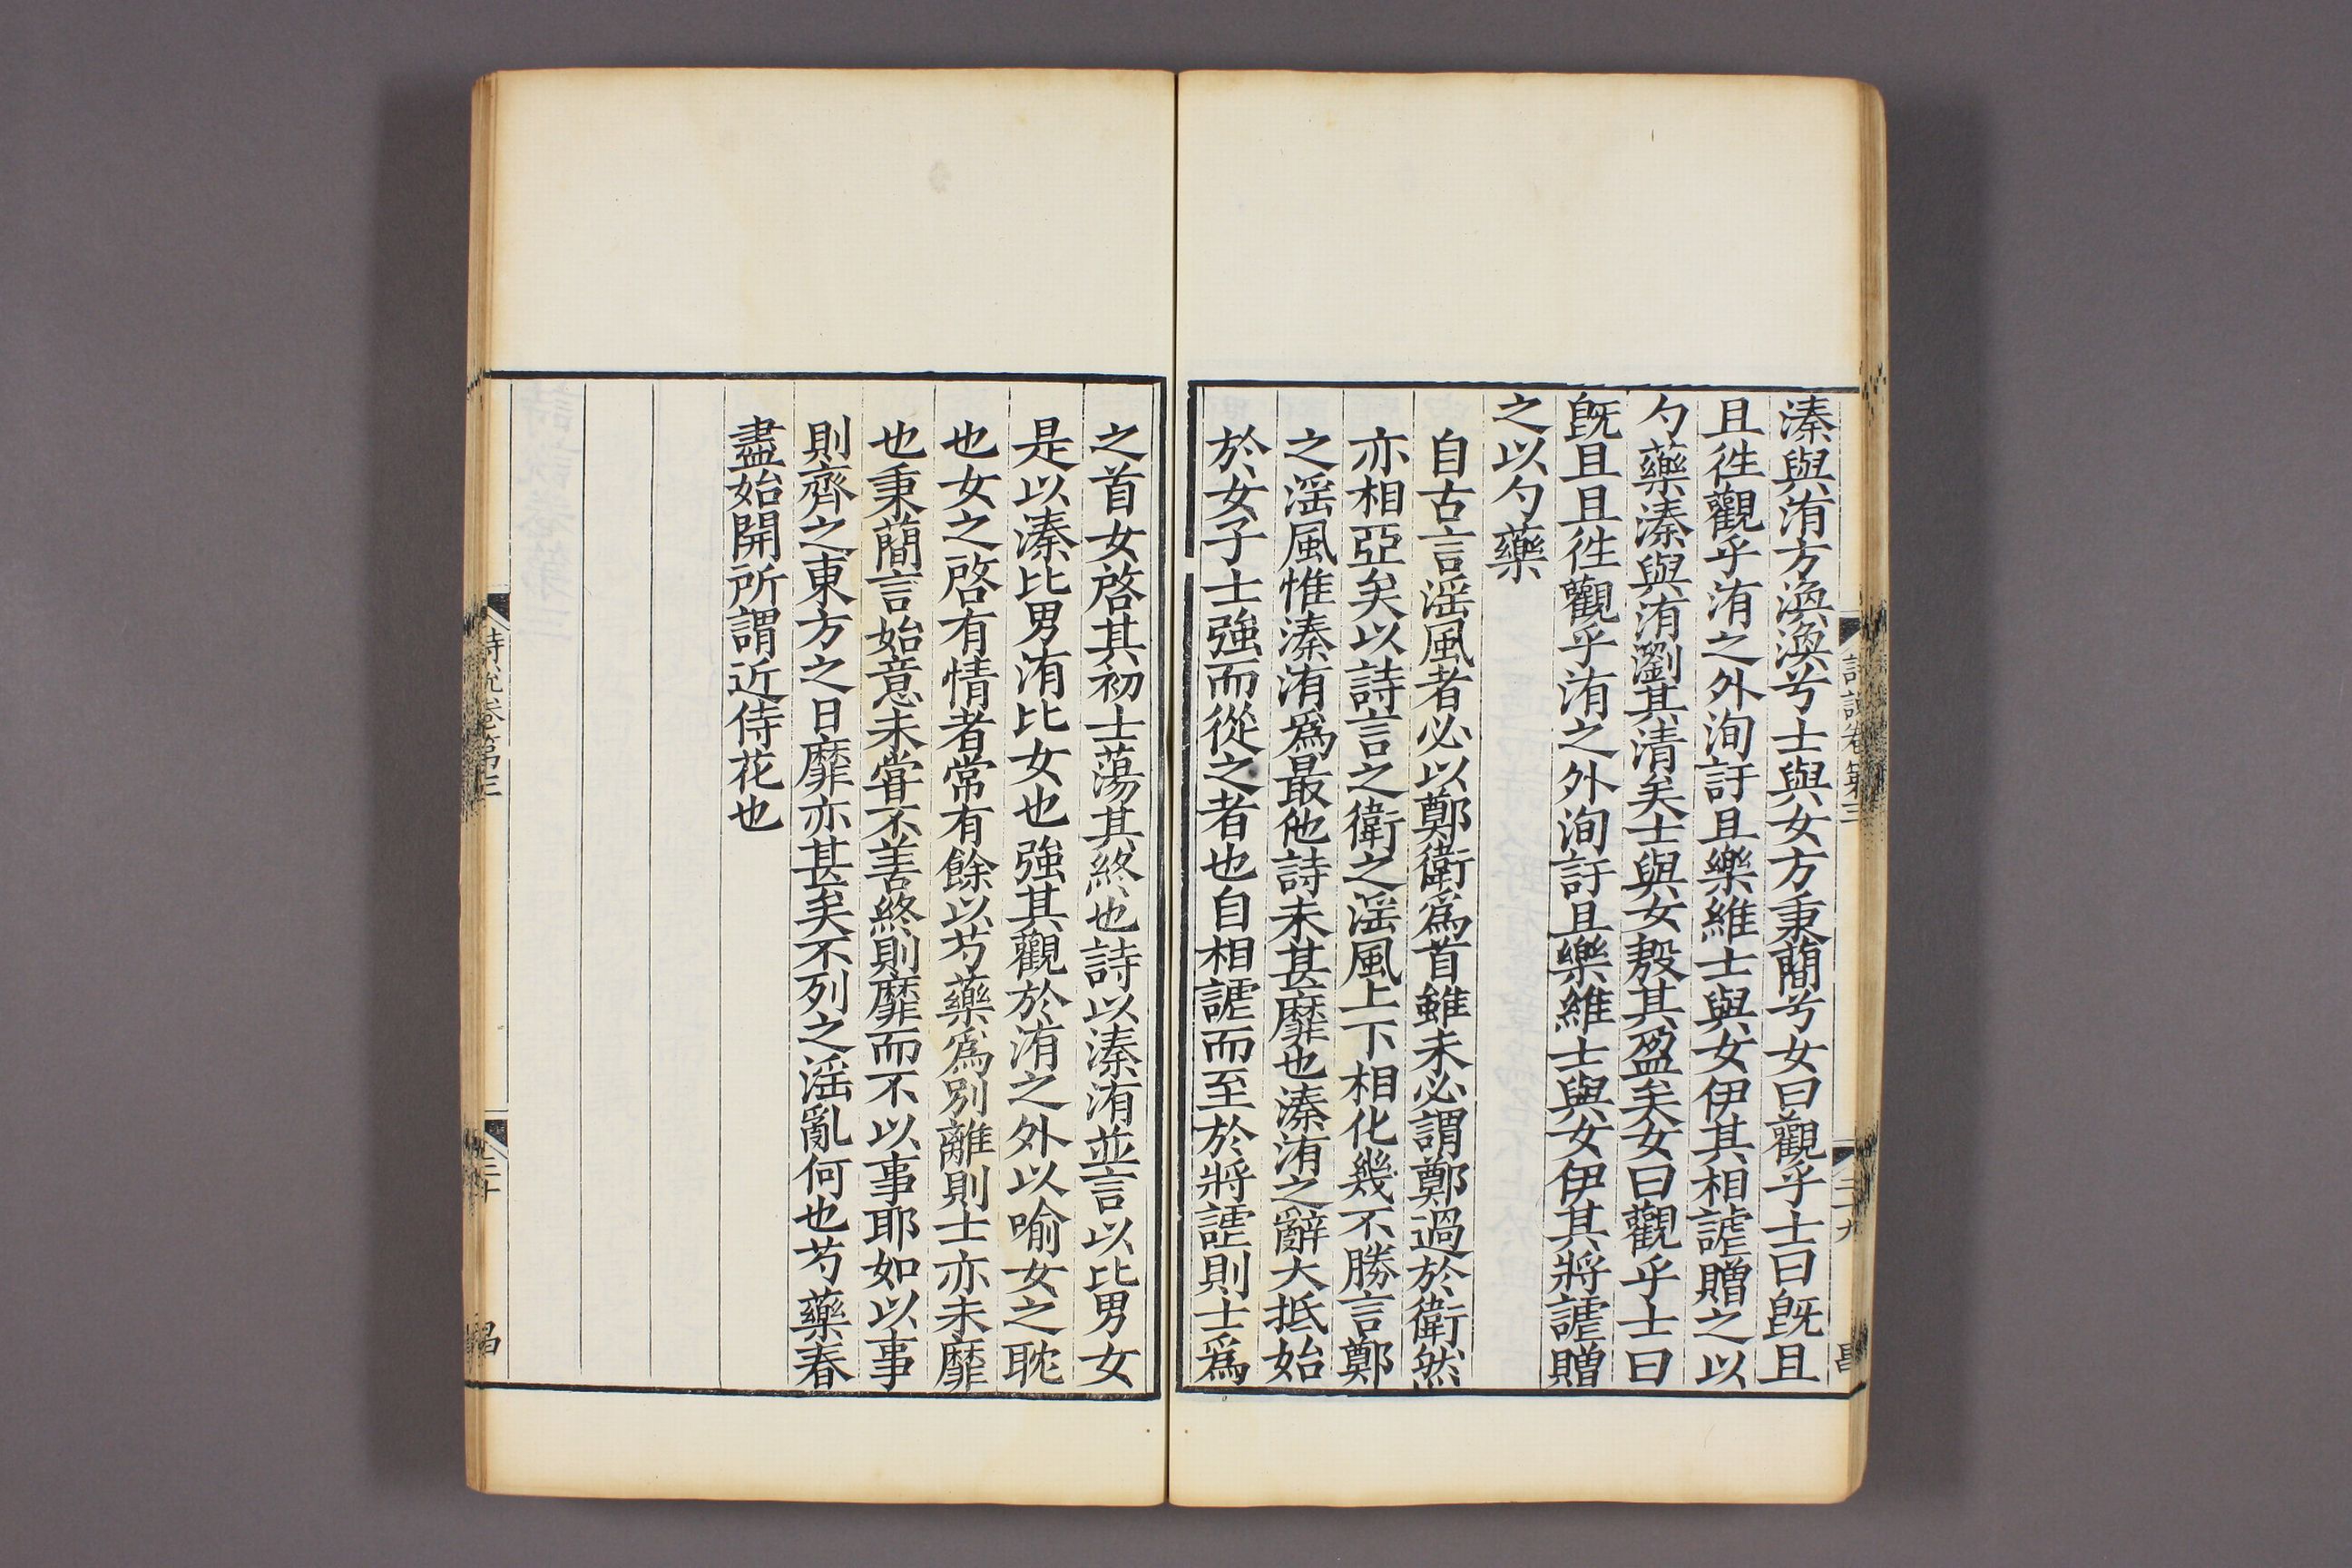 溱與洧方渙渙兮士與女方秉蕑兮女曰觀乎士曰旣且
且徃觀乎洧之外洵訏且樂維士與女伊其相謔贈之以
勺藥溱與洧瀏其清矣士與女殷其盈矣女曰觀乎士曰
旣且且徃觀乎洧之外洵訏且樂維士與女伊其將謔贈
之以勺藥
自古言滛風者必以鄭衛爲首雖未必謂鄭過於衛然
亦相亞矣以詩言之衛之滛風上下相化幾不勝言鄭
之滛風惟溱洧爲最他詩未甚靡也溱洧之辭大抵始
於女子士強而從之者也自相謔而至於將謔則士爲
詩説卷第三
二十九
昌
之首女啓其初士蕩其終也詩以溱洧並言以比男女
是以溱比男洧比女也強其觀於洧之外以喻女之耽
也女之啓有情者常有餘以芍藥爲別離則士亦未靡
也秉蕑言始意未甞不善終則靡而不以事耶如以事
則齊之東方之日靡亦甚矣不列之滛亂何也芍藥春
盡始開所謂近侍花也
詩説卷第三
三十
昌